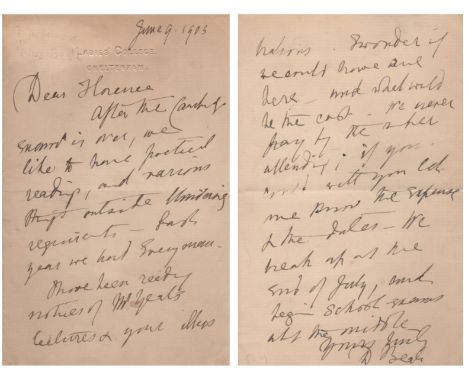 June 9. 1903
LADIES' COLLEGE,
CHELTENHAM.
Dear Florence
After the Cambridge
is over, we
like to have poetical
reading, and various
things outside
requirements — Last
year we had Everyman.
I have been reading
notices of Mr Yeats'
lectures & your illus
trations. I wonder if
we could have one
here — and what would
be the cost. We never
pay by the number
attending; if you
could will you let
me know the expense
& the dates — We
break up at the
end of July, and
begin School exams
abt the middle
Yours
D Beale